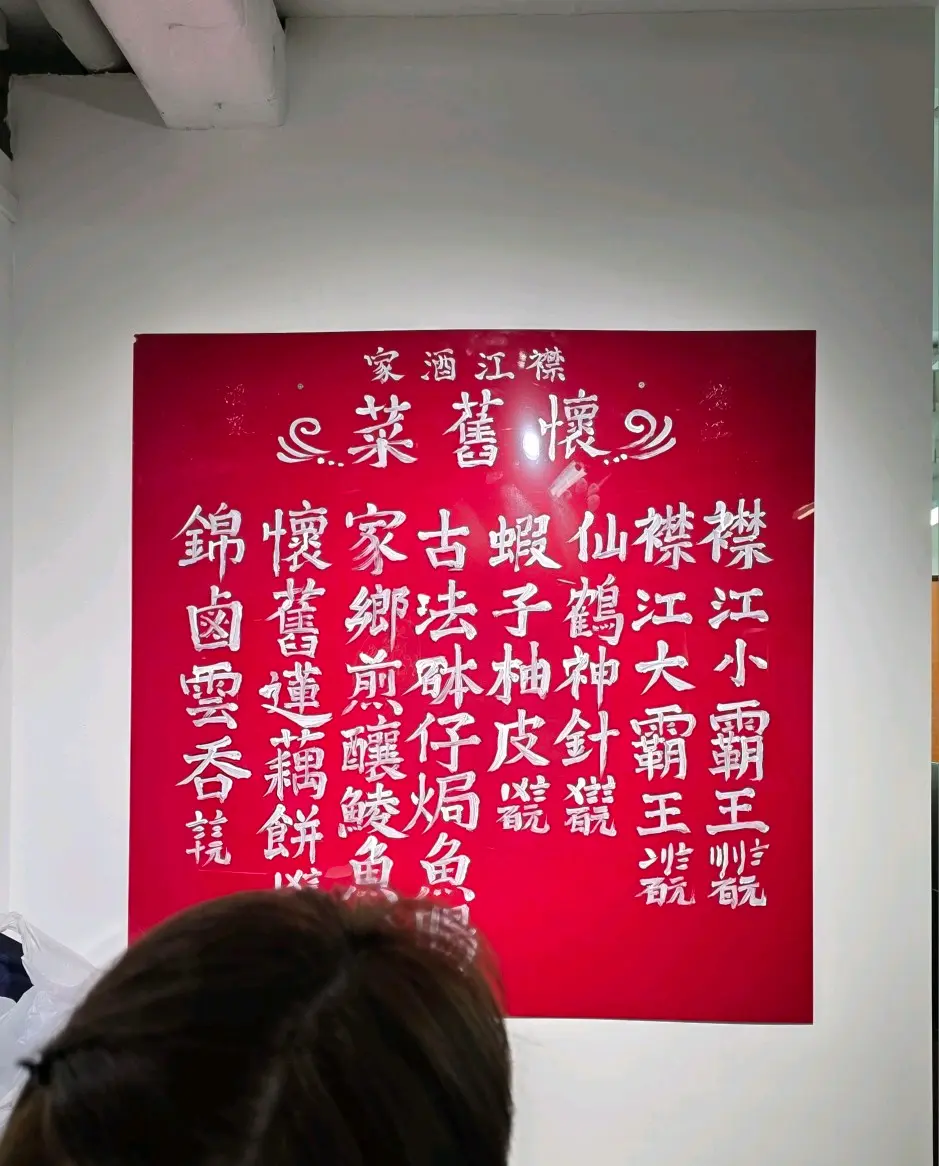 襟江酒家
懷舊菜
襟江小霸王
襟江大霸王
仙鶴神針
蝦子柚皮
古法砵仔焗魚
家鄉煎釀鯪魚
懷舊蓮藕餅
錦鹵雲吞